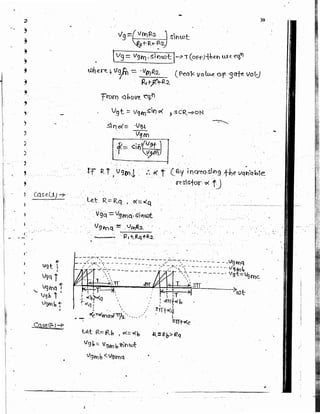 39
Vg = (VmR2 / R1+R+R2) sinωt
Vg = Vgm . sinωt → T (OFF) then use eqn
where, Vgm = VmR2 / R1+R+R2 (Peak value of gate volt)
From above eqn
Vgt = Vgm sin α , SCR → ON
sin α = Vgt / Vgm
α = sin⁻¹ (Vgt / Vgm)
If R↑ , Vgm↓ ∴ α ↑ (By increasing the variable
resistor α ↑)
Case(1) →
Let R = Ra , α = αa
Vga = Vgma . sinωt
Vgma = VmR2 / R1+Ra+R2
Vgma
Vgmb
Vgt = Vgmc
Vgt
Vga ↑
Vgma ↑
Vgb ↑
Vgmb ↑
T T π 2π 3π
ωt
αa αb > αa
αc = αmax = π/2
2π+αa
2π+αb
2π+αc
Case(2) →
Let R = Rb , α = αb Rb > Ra
Vgb = Vgmb sinωt
Vgmb < Vgma